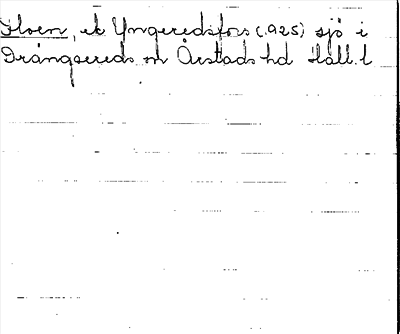 Iloen, ek Yngeredsfors (.925) sjö i
Drängsereds sn Årstads hd Hall. l